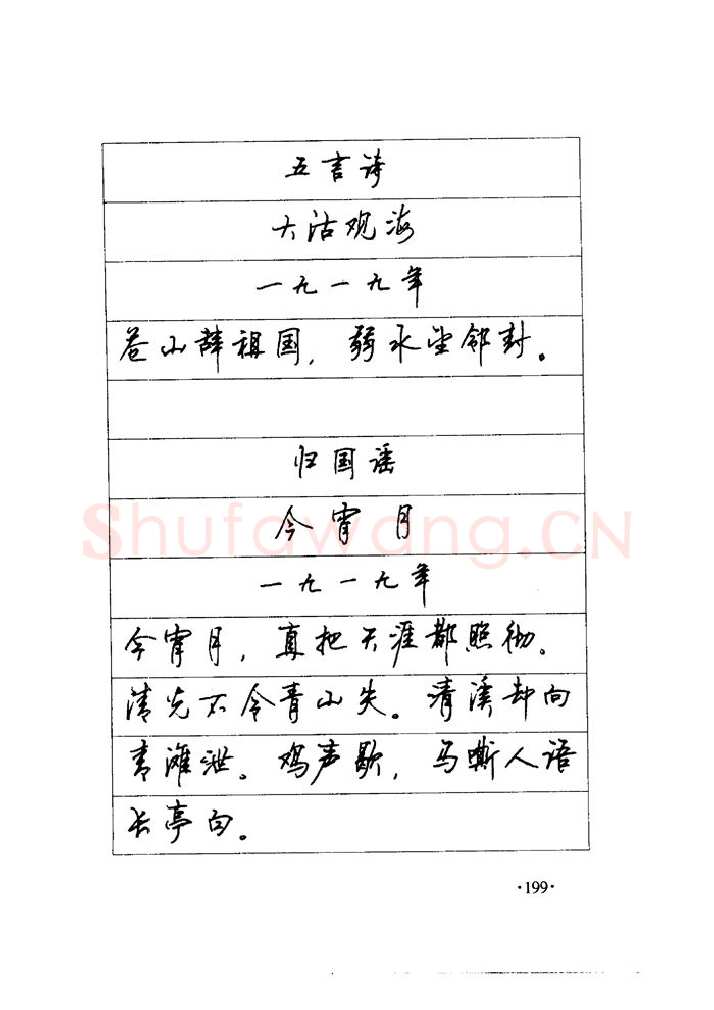 五言诗
大沽观海
一九一九年
苍山辞祖国，弱水望邻封。
归国谣
今宵月
Shufawang.CN
一九一九年
今宵月，真把天涯都照彻。
清光不令青山失。清溪却向
青滩泄。鸡声歇，马嘶人语
长亭白。
·199·